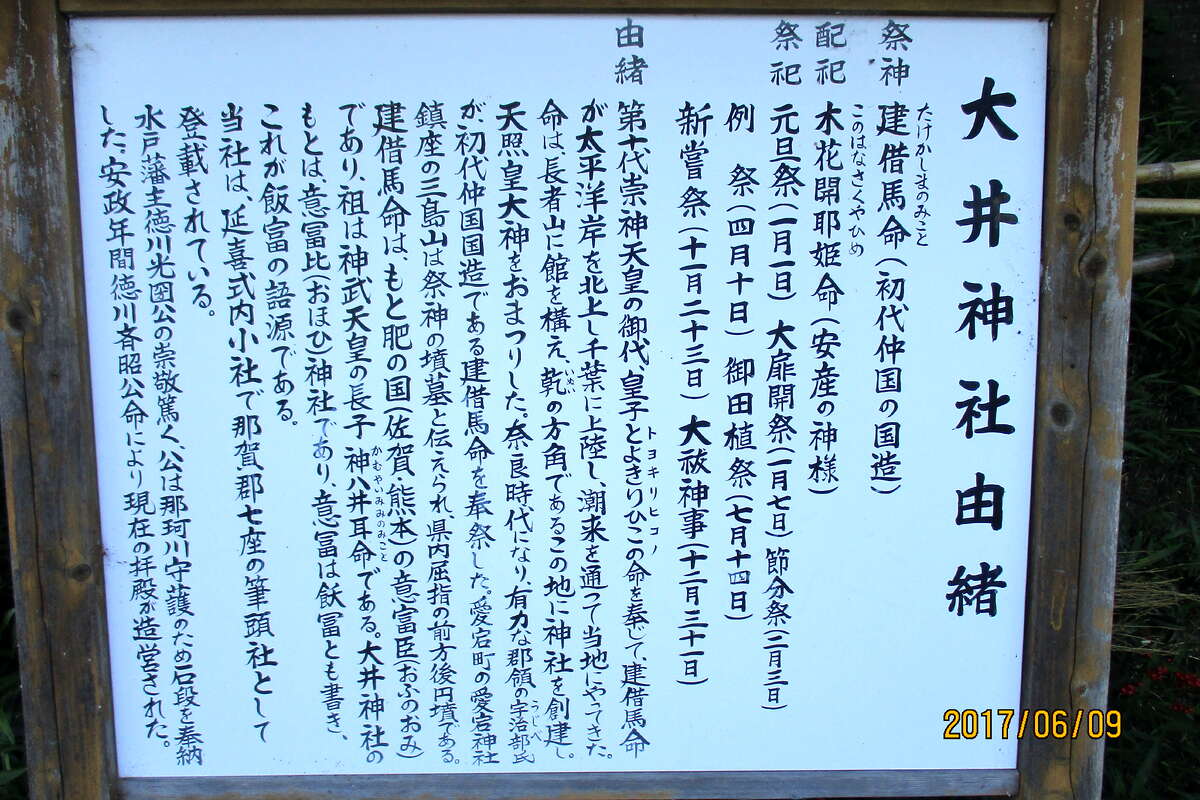 大井神社由緒
祭神 建借馬命(初代仲国の国造)
たけかしまのみこと
配祀 木花開耶姫命(安産の神様)
このはなさくやひめ
祭祀 元旦祭(一月一日) 大扉開祭(一月七日) 節分祭(二月三日)
例 祭(四月十日) 御田植祭(七月十四日)
新嘗祭(十一月二十三日) 大祓神事(十二月三十一日)
由緒 第十代崇神天皇の御代、皇子とよきりひこの命を奉じて、建借馬命
トヨキリヒコノ
が太平洋岸を北上し千葉に上陸し、潮来を通って当地にやってきた。
命は、長者山に館を構え、乾の方角であるこの地に神社を創建し。
いぬい
天照皇大神をおまつりした。奈良時代になり、有力な郡領の宇治部氏
うじべ
が、初代仲国国造である建借馬命を奉祭した。愛宕町の愛宕神社
鎮座の三島山は祭神の墳墓と伝えられ、県内屈指の前方後円墳である。
建借馬命は、もと肥の国(佐賀・熊本)の意富臣(おふのおみ)
であり、祖は神武天皇の長子 神八井耳命である。大井神社の
かむやいみみのみこと
もとは、意冨比(おほひ)神社であり、意冨は飫冨とも書き、
これが飯富の語源である。
当社は、延喜式内小社で那賀郡七座の筆頭社として
登載されている。
水戸藩主徳川光圀公の崇敬篤く、公は那珂川守護のため石段を奉納
した、安政年間徳川斉昭公命により現在の拝殿が造営された。
2017/06/09